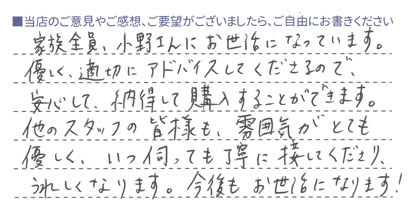 ■当店のご意見やご感想、ご要望がございましたら、ご自由にお書きください
家族全員、小野さんにお世話になっています。
優しく、適切にアドバイスしてくださるので、
安心して、納得して購入することができます。
他のスタッフの皆様も、雰囲気がとても
優しく、いつ伺っても丁寧に接してくださり、
うれしくなります。今後もお世話になります!